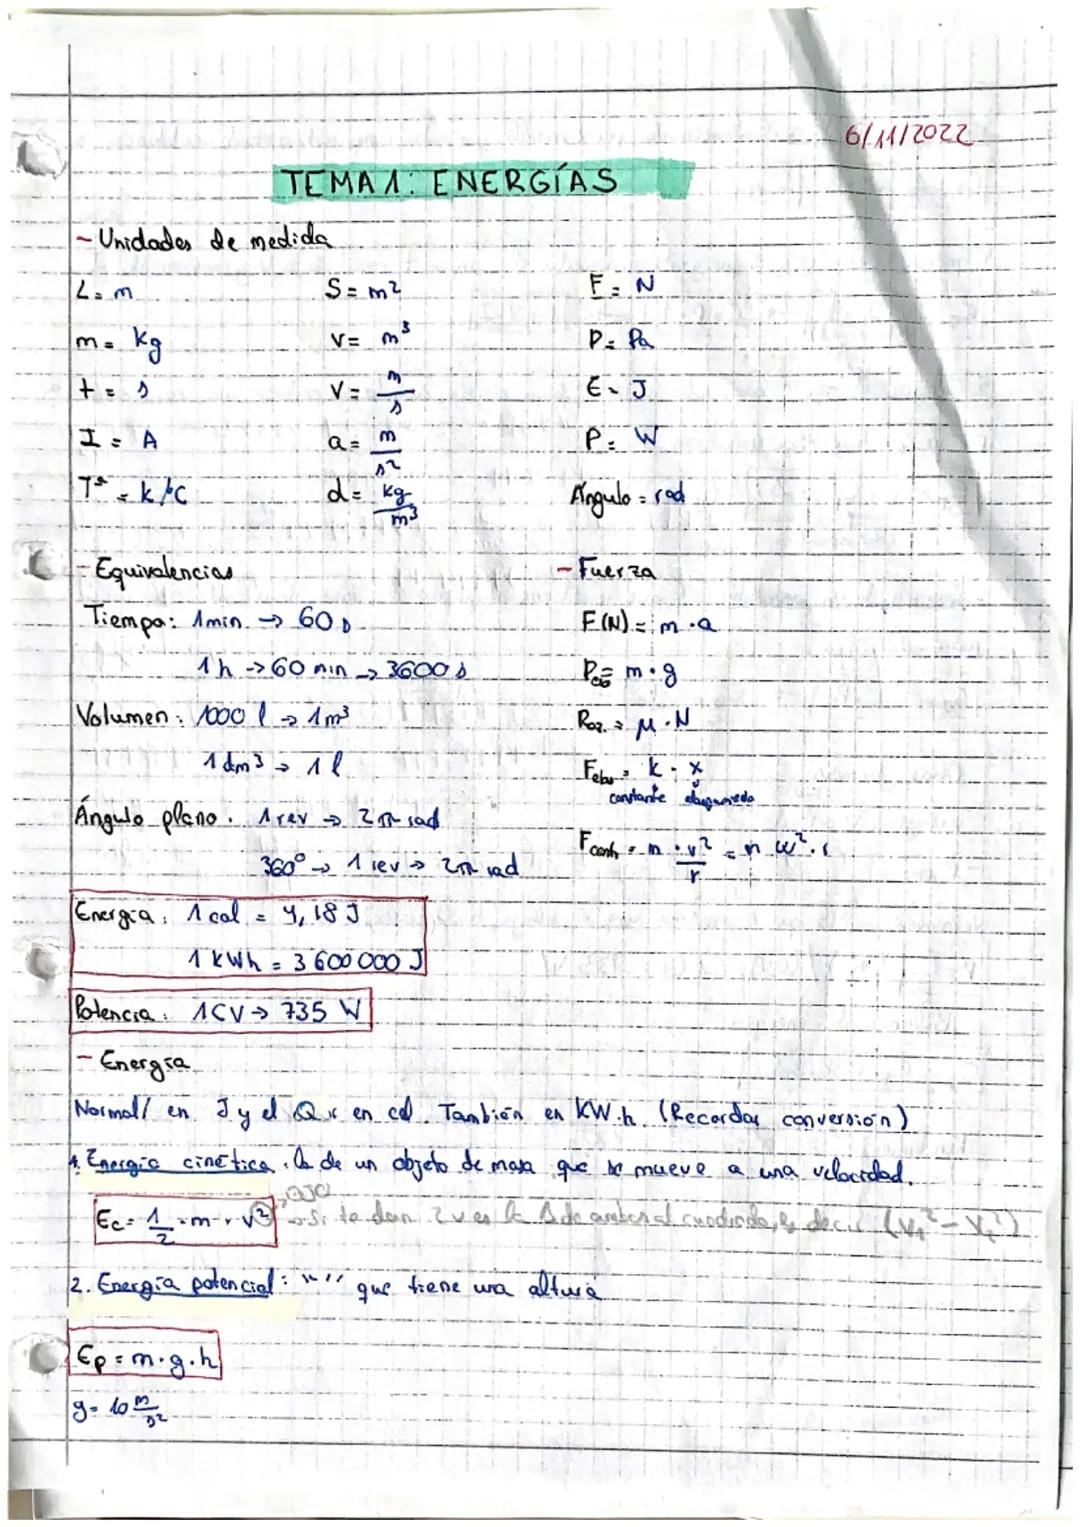 6/11/2022
TEMA 1: ENERGÍAS
- Unidades de medida
L = m    S = m²    F = N
m = kg    V = m³    P = Pa
t = s    v = m/s    E = J
I = A    a = m/s²    P = W
Tª = k/ºC    d = kg/m³    Ángulo = rad
- Equivalencias
Tiempo: 1 min → 60 s
1 h → 60 min → 3600 s
Volumen: 1000 l → 1 m³
1 dm³ → 1 l
Ángulo plano. 1 rev → 2π rad
360º → 1 rev → 2π rad
Energía: 1 cal = 4,18 J
1 KWh = 3 600 000 J
Potencia: 1 CV → 735 W
- Fuerza
F(N) = m · a
P = m · g
Roz. = μ · N
Felas = k · x
constante
Fcent = m · v²/r = m w² · r
- Energía
Normal/ en J y el Q en cal. También en KW.h (Recordar conversión)
1. Energía cinética. la de un objeto de masa que se mueve a una velocidad.
OJO
Ec = 1/2 · m · v² → Si te dan 2 v es la Δ de ambas al cuadrado, es decir (
2. Energía potencial: " " que tiene una altura
Ep = m · g · h
g = 10 m/s²